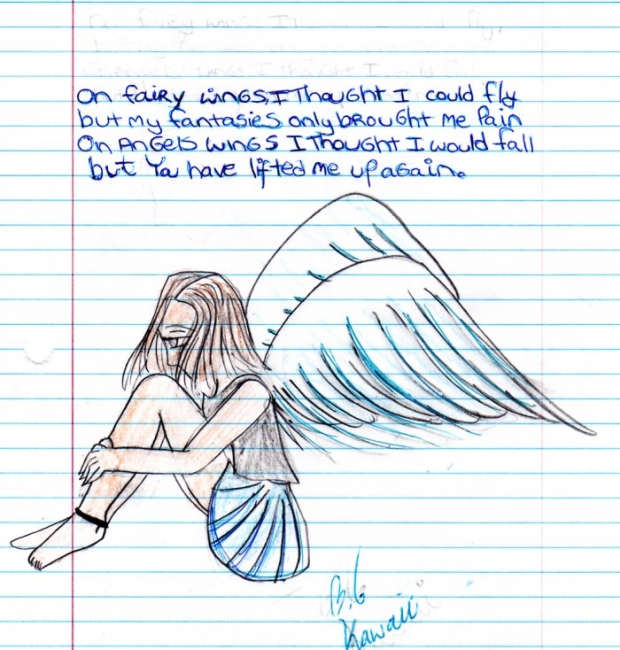 On fairy wings, I Thought I could fly
but my fantasies only brought me Pain
On Angels wings I Thought I would fall
but Ya have lifted me up again.
B.G
Kawaii